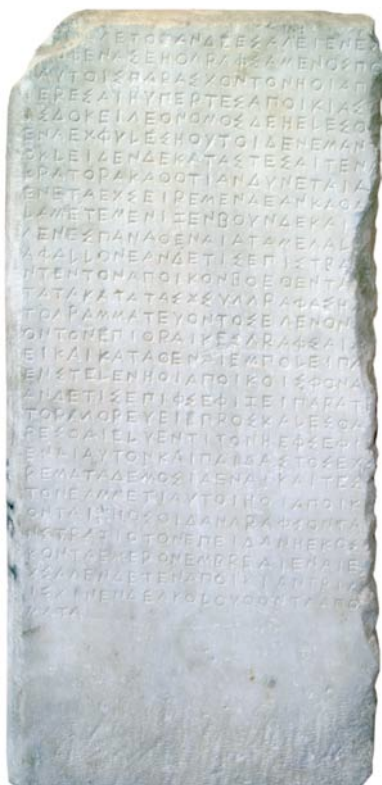 ΕΤΟΕΑΝΔΕΕΣΑΛΕΙΕΝΕ
ΕΝΑΣΕΗΟΛΡΑΦΣΑΜΕΝΟΣΠ
ΑΥΤΟΙΣΠΑΡΑΣΧΟΝΤΟΝΗΟΙΑΠ
ΙΕΡΕΣΑΙΗΥΠΕΡΤΕΣΑΠΟΙΚΙΑΣ
ΣΔΟΚΕΙΛΕΟΝΟΜΟΣΔΕΗΕLΕΣΘ
ΕΝΑΕΧΦΥLΕΣΗΟΥΤΟΙΔΕΝΕΜΑΝ
ΟΚLΕΙΔΕΝΔΕΚΑΤΑΣΤΕΣΑΙΤΕΝ
ΚΡΑΤΟΡΑΚΑΘΟΤΙΑΝΔΥΝΕΤΑΙΑ
ΕΝΕΤΑΕΧΣΕΙΡΕΜΕΝΑΕΑΝΚΑΘΑ
LΑΜΕΤΕΜΕΝΙΖΕΝΒΟΥΝΔΕΚΑΙ
ΛΕΝΕΣΠΑΝΑΘΕΝΑΙΑΤΑΜΕΛΑL
ΑΦΑLLΟΝΕΑΝΔΕΤΙΣΕΠΙΣΤΡΑ
ΝΤΕΝΤΟΝΑΠΟΙΚΟΝΒΟΕΘΕΝΤΑ
ΤΑΤΑΚΑΤΑΤΑΣΧΣΥΛΛΡΑΦΑΣΗ
ΤΟΛΡΑΜΜΑΤΕΥΟΝΤΟΣΕΛΕΝΟΝ
ΟΝΤΟΝΕΠΙΘΡΑΙΚΕΣΛΡΑΦΣΑΙ
ΕΙΚΑΙΚΑΤΑΘΕΝΑΙΕΜΠΟLΕΙΠΑ
ΕΝΣΤΕLΕΝΗΟΙΑΠΟΙΚΟΙΣΦΟΝΑ
ΑΝΔΕΤΙΣΕΠΙΦΣΕΦΙΖΕΙΠΑΡΑΤΕ
ΤΟΡΑΛΟΡΕΥΕΙΕΠΡΟΣΚΑLΕΣΘΑ
ΡΕΣΘΑΙΕLΥΕΝΤΙΤΟΝΗΕΦΣΕΦΙ
ΕΝΑΙΑΥΤΟΝΚΑΙΠΑΙΔΑΣΤΟΣΕΧΣ
ΡΕΜΑΤΑΔΕΜΟΣΙΑΕΝΑΙΚΑΙΤΕΣ
ΤΟΝΕΑΜΜΕΤΙΑΥΤΟΙΗΟΙΑΠΟΙΚ
ΟΝΤΑΙΗΟΣΟΙΔΑΝΛΡΑΦΣΟΝΤΑ
ΝΣΤΡΑΤΙΟΤΟΝΕΠΕΙΔΑΝΗΕΚΟΣ
ΚΟΝΤΑΕΜΕΡΟΝΕΜΒΡΕΑΙΕΝΑΙΕ
ΧΣΑΛΕΝΔΕΤΕΝΑΠΟΙΚΙΑΝΤΡΙΑ
ΙΣΧΙΝΕΝΔΕΑΚΟLΟΥΘΟΝΤΑΑΠΟ
ΜΑΤΑ